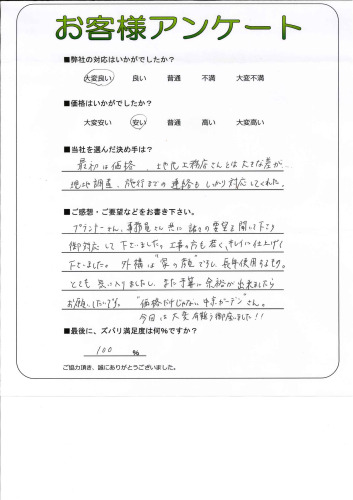 お客様アンケート
■弊社の対応はいかがでしたか？
大変良い 良い 普通 不満 大変不満
■価格はいかがでしたか？
大変安い 安い 普通 高い 大変高い
■当社を選んだ決め手は？
最初は価格、土地の工務店さんとは大きな差が…
現地調査、施行までの連絡もしっかり対応してくれた。
■ご感想・ご要望などをお書き下さい。
プランナーさん、事務員さん共に諸々の要望を聞いて下さり
御対応して下さいました。工事の方も若く、キレイに仕上げて
下さいました。外構は"家の顔"ですし、長年使用するもの。
とても気に入りましたし、また予算に余裕が出来ましたら
お願いしたいです。"価格だけじゃない ガーデン"さん。
今回は大変有難う御座いました!!
■最後に、ズバリ満足度は何％ですか？
100 ％
ご協力頂き、誠にありがとうございました。